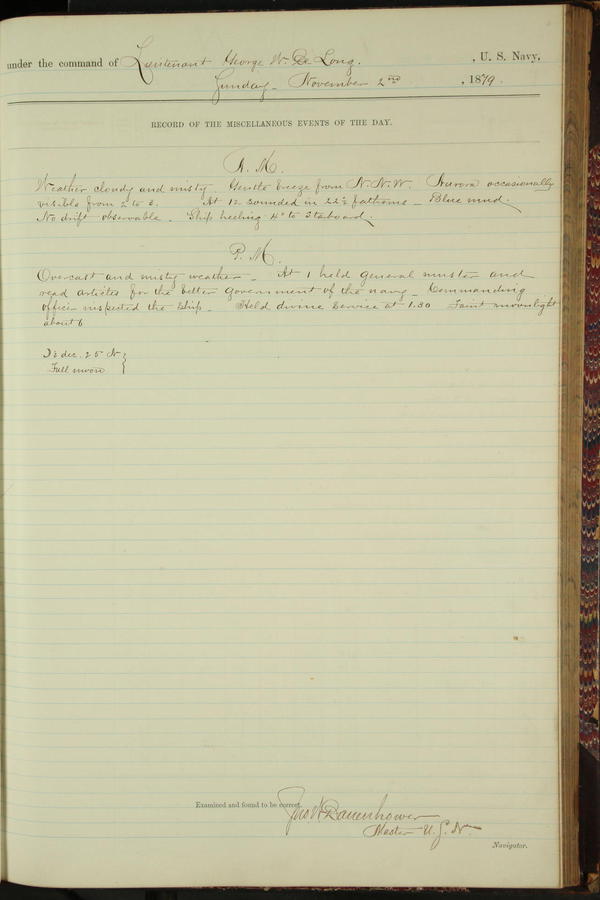 under the command of Lieutenant George W. De Long. , U. S. Navy,
Sunday - November 2nd , 1879.
RECORD OF THE MISCELLANEOUS EVENTS OF THE DAY.
A. M.
Weather cloudy and misty. Gentle breeze from N.N.W. Aurora occasionally
visible from 2 to 3. At 12 sounded in 22½ fathoms - Blue mud.
No drift observable. Ship heeling 4° to Starboard.
P. M.
Overcast and misty weather - At 1 held general muster and
read articles for the better government of the navy - Commanding
officer inspected the ship - Held divine service at 1.30 Faint moonlight
about 6
dec. 25 N
Full moon }
Examined and found to be correct.
Jno. W. Danenhower
Master U.S.N.
Navigator.